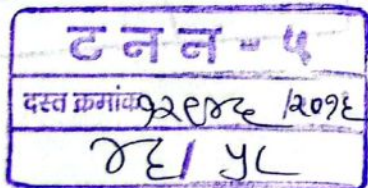 ट न न - ५
दस्त क्रमांक १२९४६ /२०१६
४६/ ५८